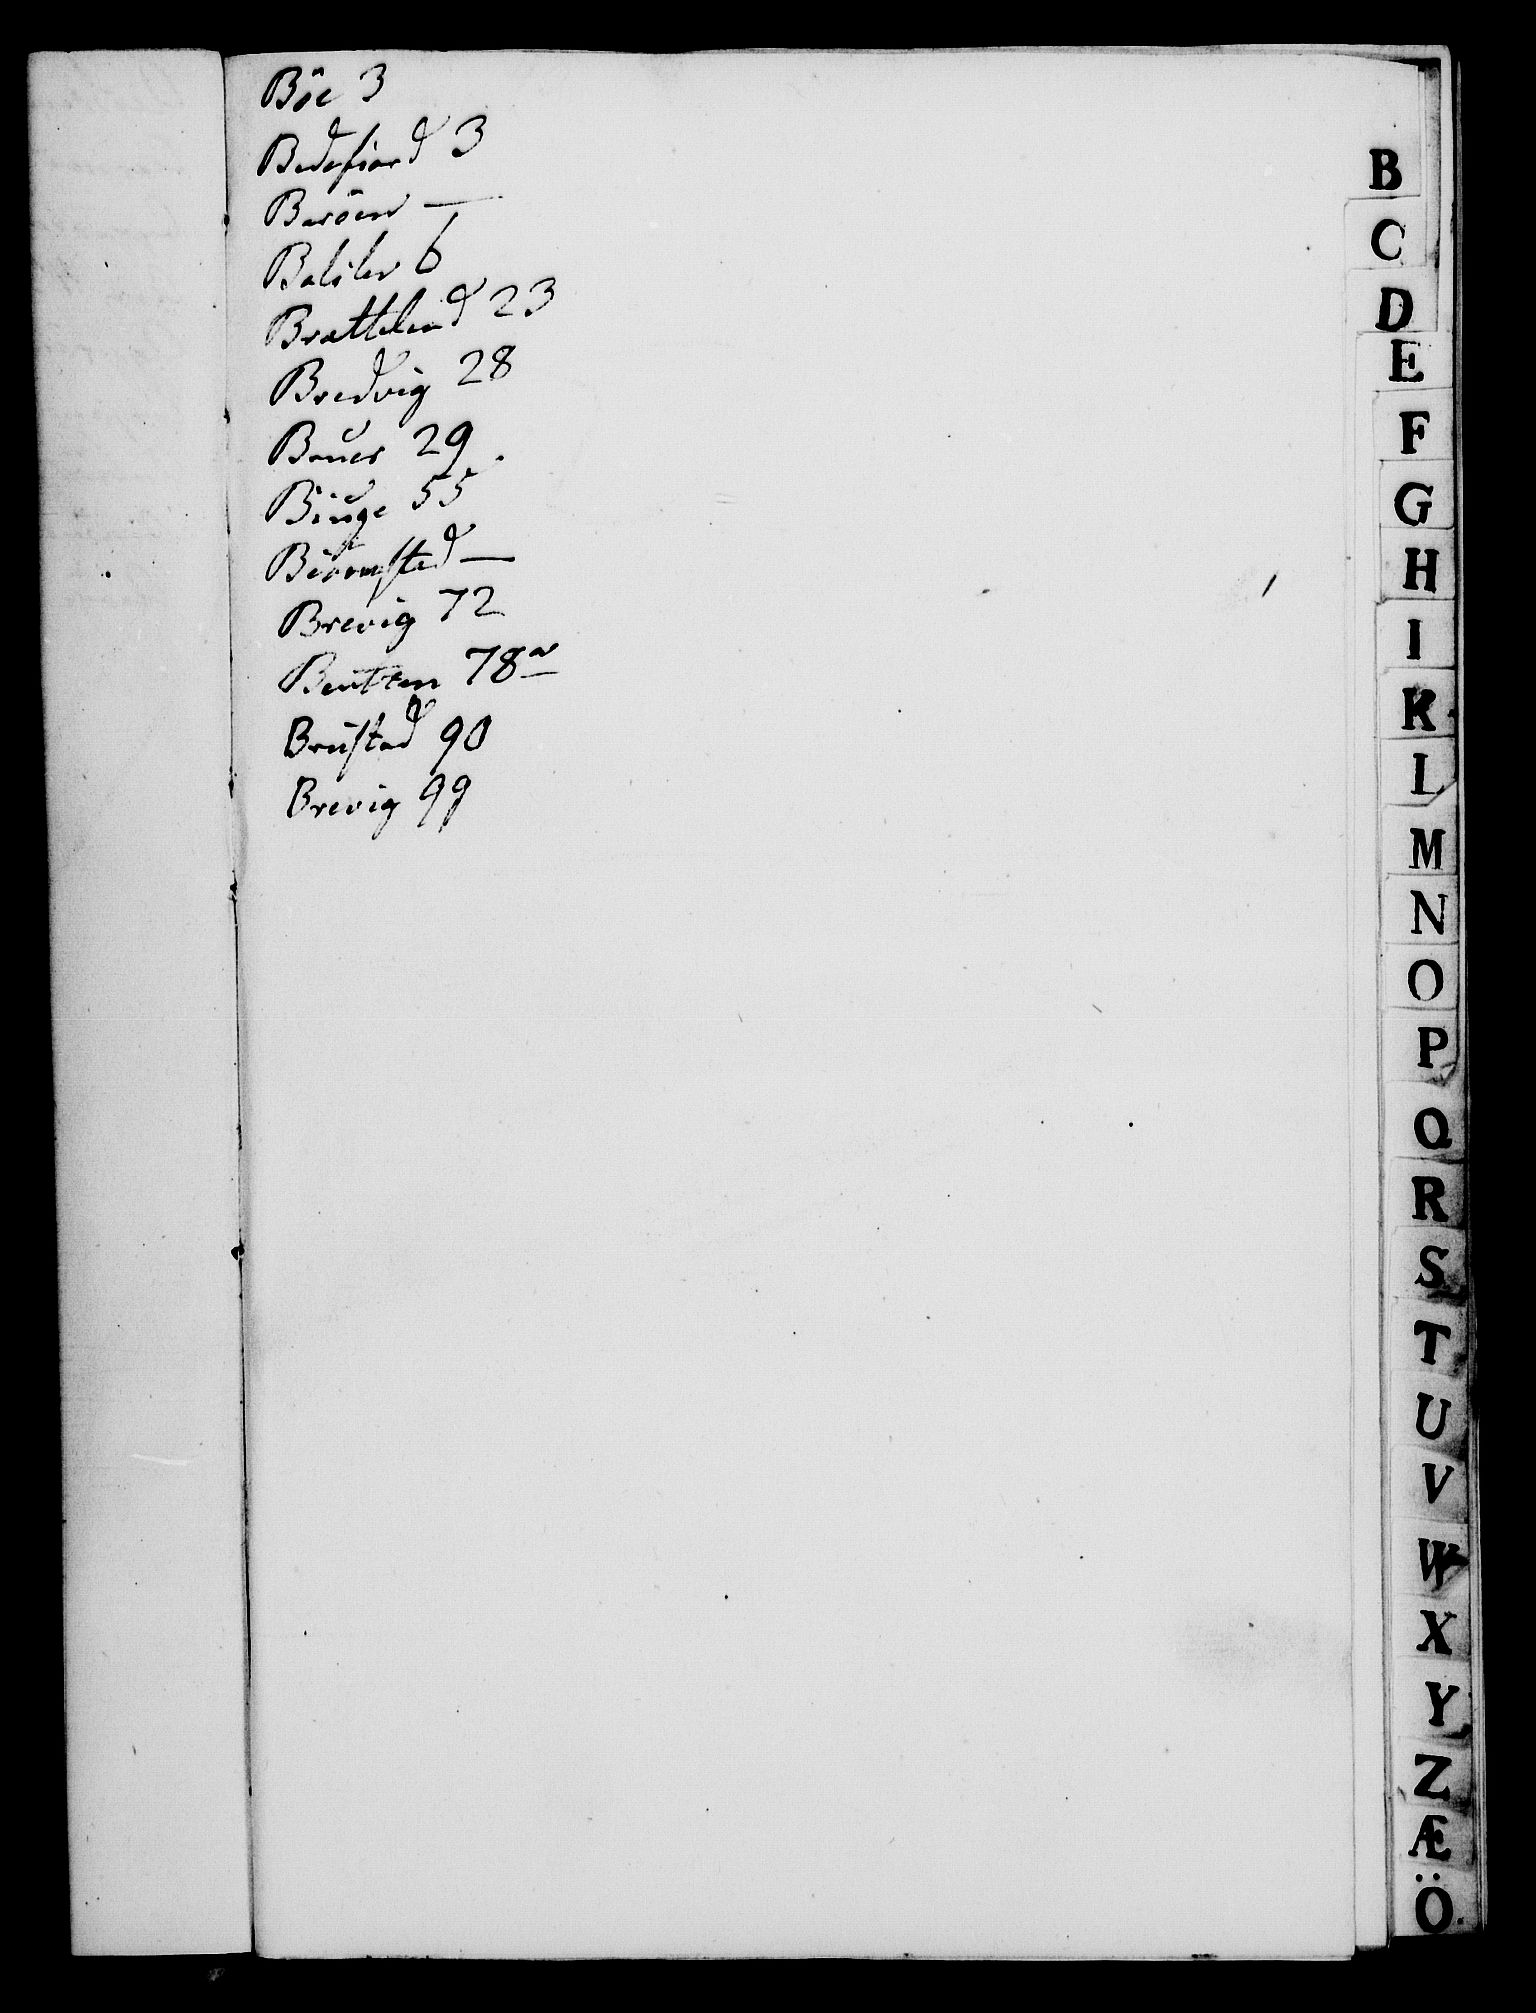 Böe 3
Badefiord 3
Baröen —
Balslev 6
Bratteland 23
Bredvig 28
Bauer 29.
Biuge 55
Biörnsted —
Brevig 72
Beutten 78 a
Brustad 90
Brevig 99
B
C
D
E
F
G
H
I
K
L
M
N
O
P
Q
R
S
T
U
V
W
X
Y
Z
Æ
Ö